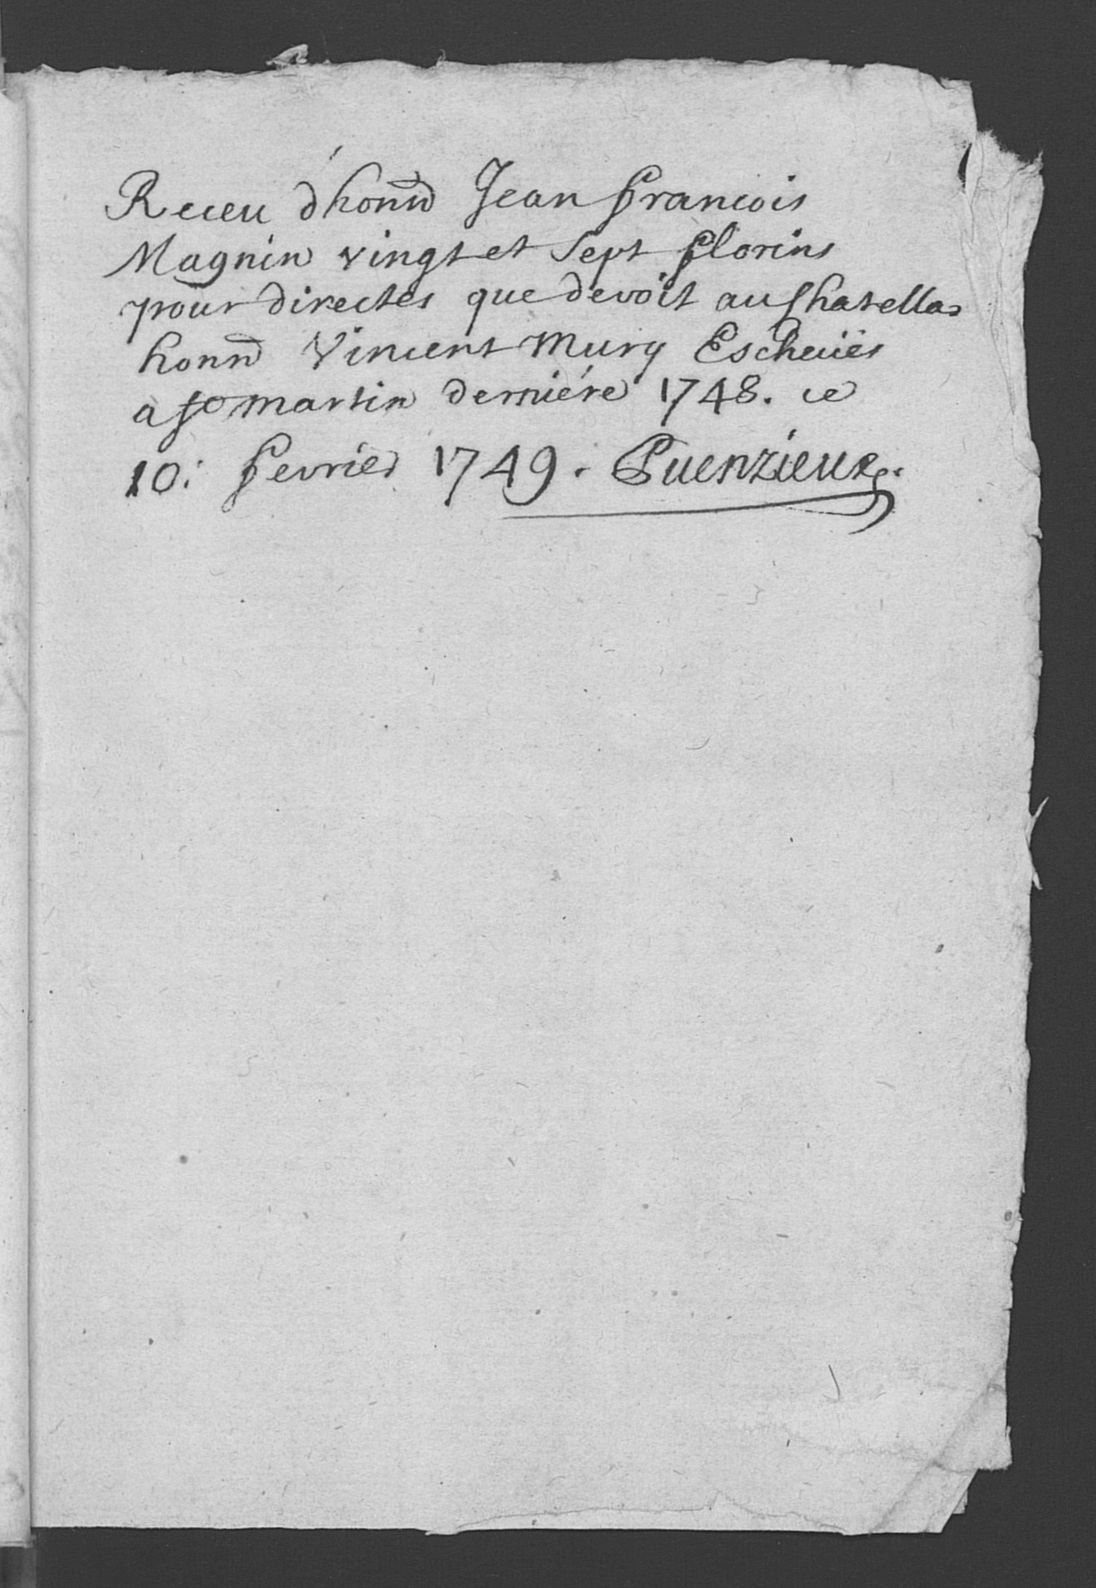 Receu d'honn̄ Jean francois
Magnin vingt et sept florins
pour directes que devoit au Chatellar
honn̄ Vincent Mury Escheües
a St martin derniére 1748. ce
10: fevrier 1749. Puenzieux.